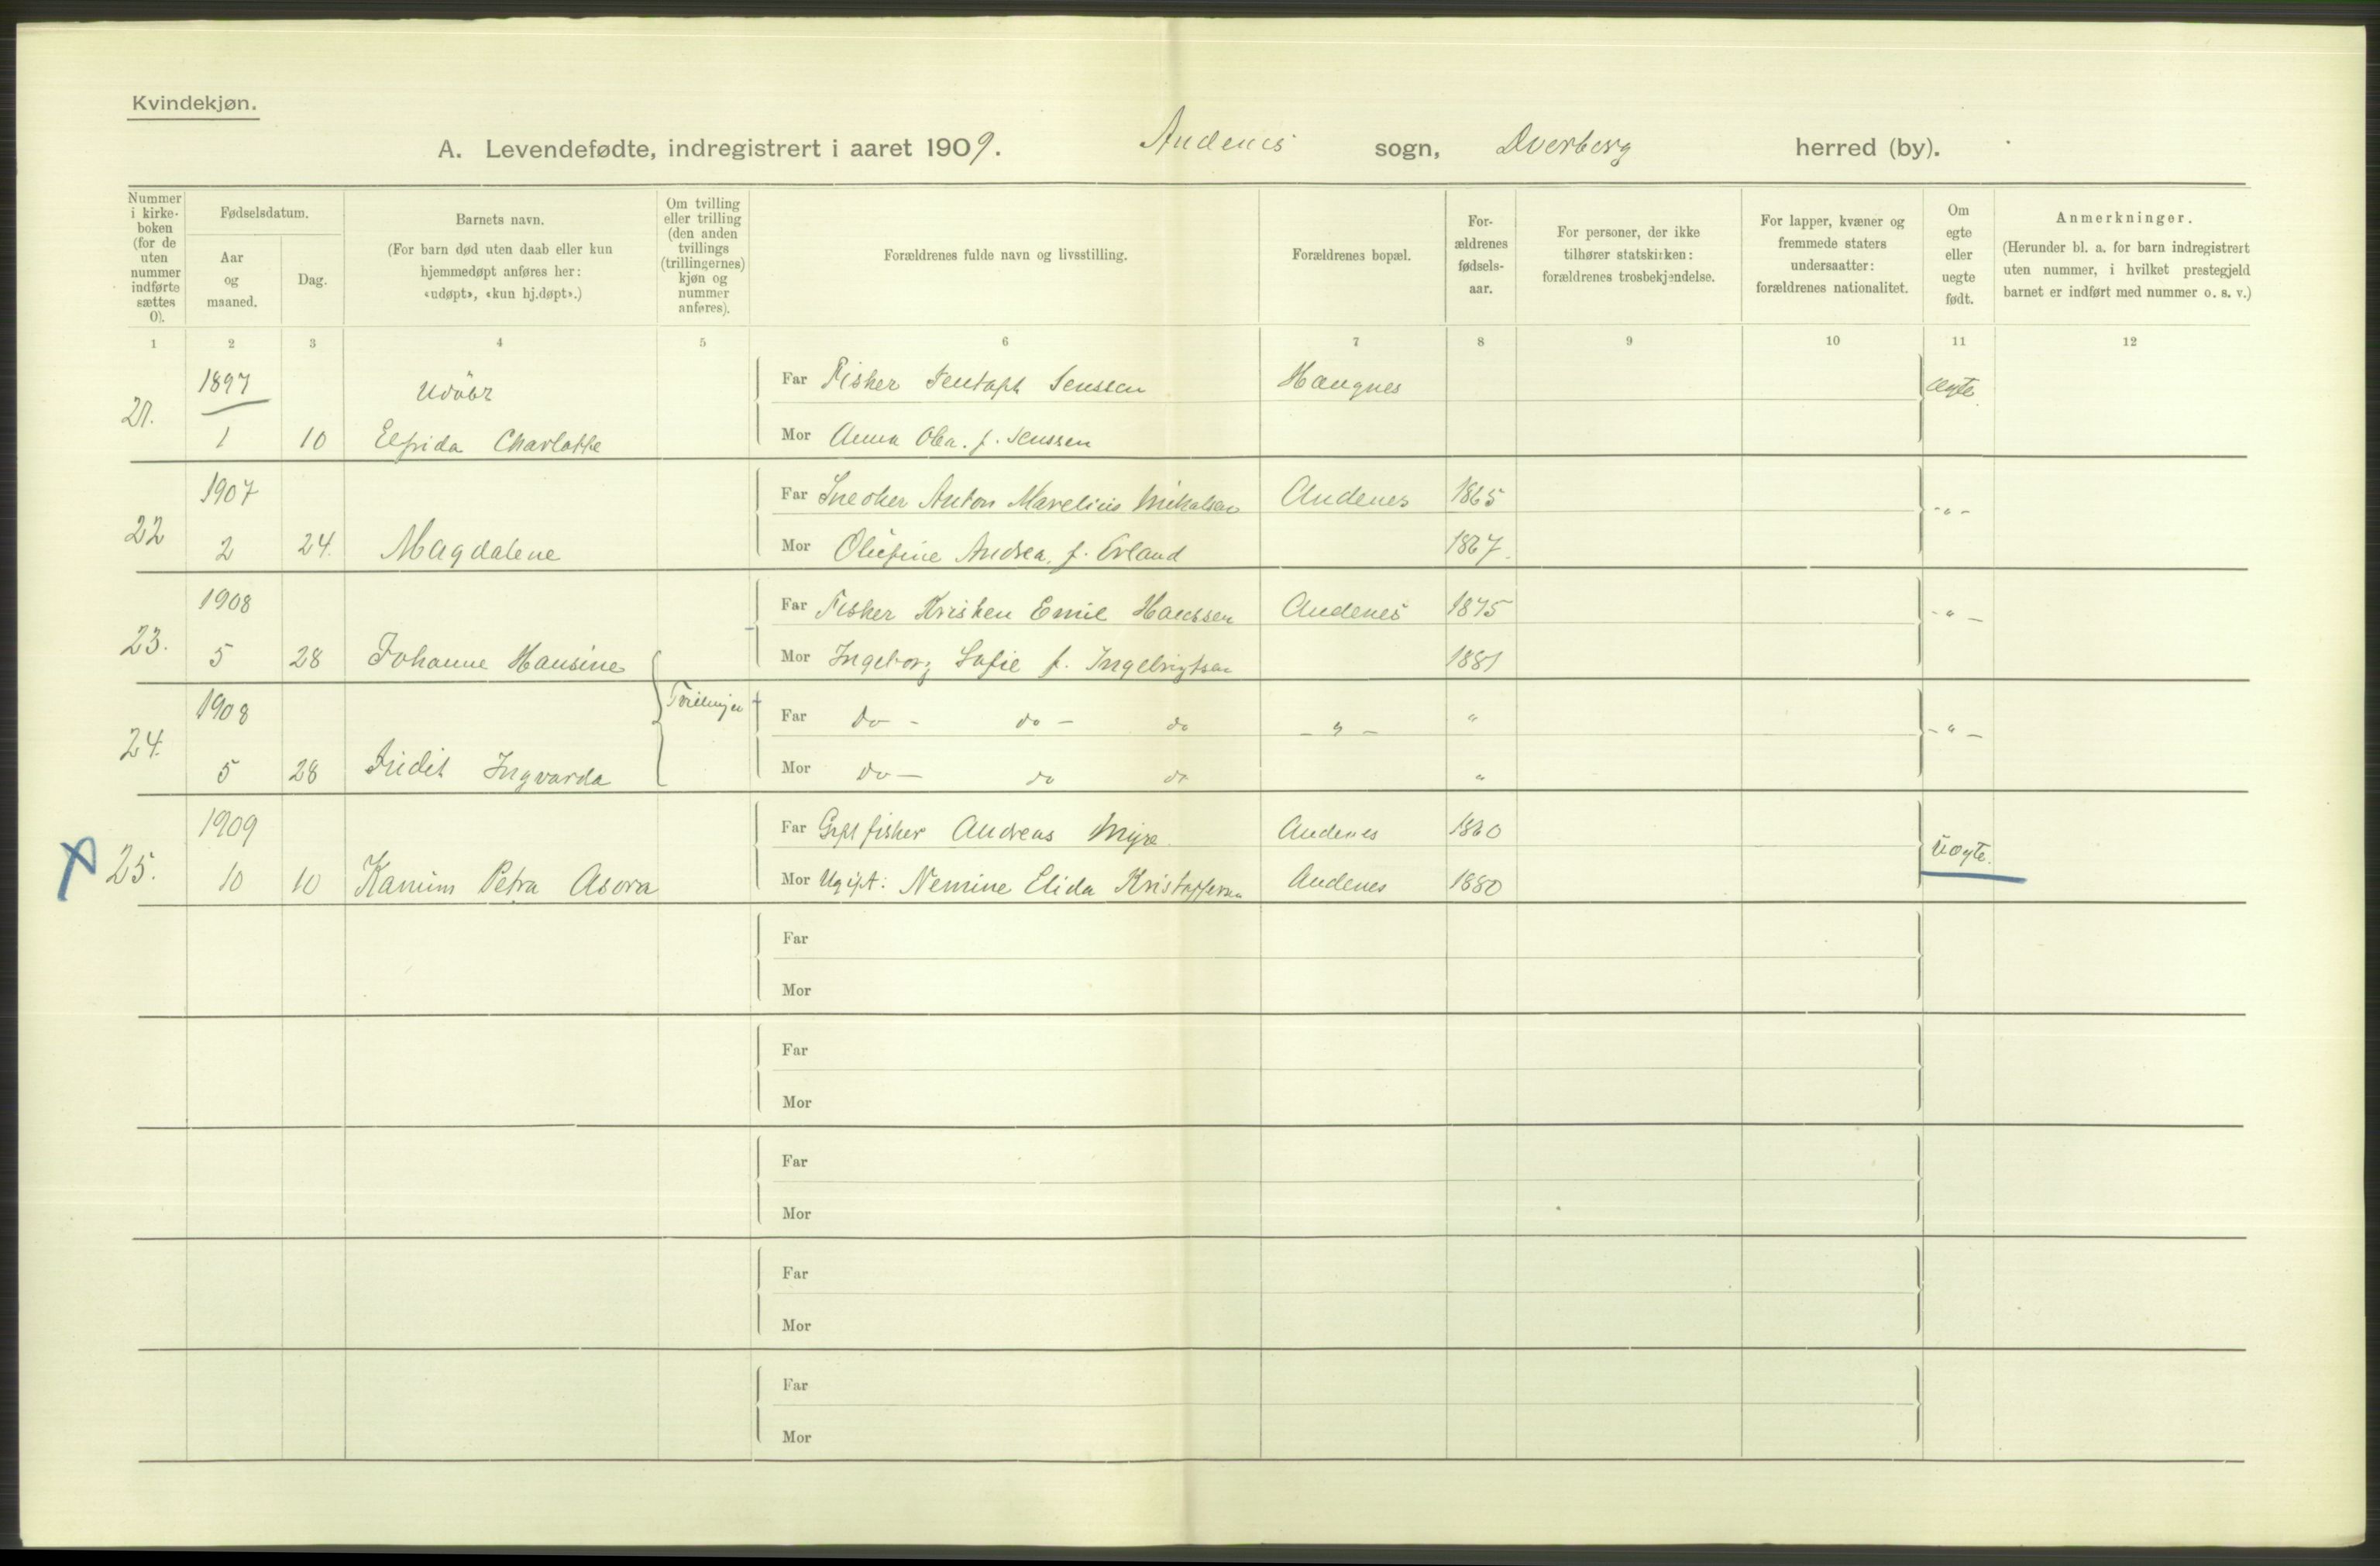 Kvindekjøn.
A. Levendefødte, indregistrert i aaret 1909. Andenes sogn, Dverberg herred (by).
Nummer i kirke-boken (for de uten nummer indførte sættes 0).
Fødselsdatum.
Aar og maaned.
Dag.
Barnets navn.
(For barn død uten daab eller kun hjemmedøpt anføres her: «udøpt», «kun hj.døpt».)
Om tvilling eller trilling (den anden tvillings (trillingernes) kjøn og nummer anføres).
Forældrenes fulde navn og livsstilling.
Forældrenes bopæl.
For-ældrenes fødsels-aar.
For personer, der ikke tilhører statskirken: forældrenes trosbekjendelse.
For lapper, kvæner og fremmede staters undersaatter: forældrenes nationalitet.
Om egte eller uegte født.
Anmerkninger.
(Herunder bl. a. for barn indregistrert uten nummer, i hvilket prestegjeld barnet er indført med nummer o. s. v.)
1 2 3 4 5 6 7 8 9 10 11 12
1897 Far Fisker Jenssen Haugnes ægte
21. 1 10 Elfrida Charlotte Mor Anna f. Jenssen
1907 Far Anton Marelius Mikalsen Andenes 1865 -"-
22 2 24. Magdalene Mor Olufine Andrea f. Erland 1867.
1908 Far Fisker Kristen Emil Hanssen Andenes 1875 -"-
23. 5 28 Johanne Hansine Mor Ingeborg Sofie f. Ingebrigtsen 1881
Tvillinger
1908 Far do - do - do - " - " -"-
24. 5 28 Ingvarda Mor do - do do "
1909 Far Gift fisker Andreas Myre Andenes 1860 uægte.
25. 10 10 Petra Asora Mor Ugift: Nemine Elida Kristoffersen Andenes 1880
Far
Mor
Far
Mor
Far
Mor
Far
Mor
Far
Mor